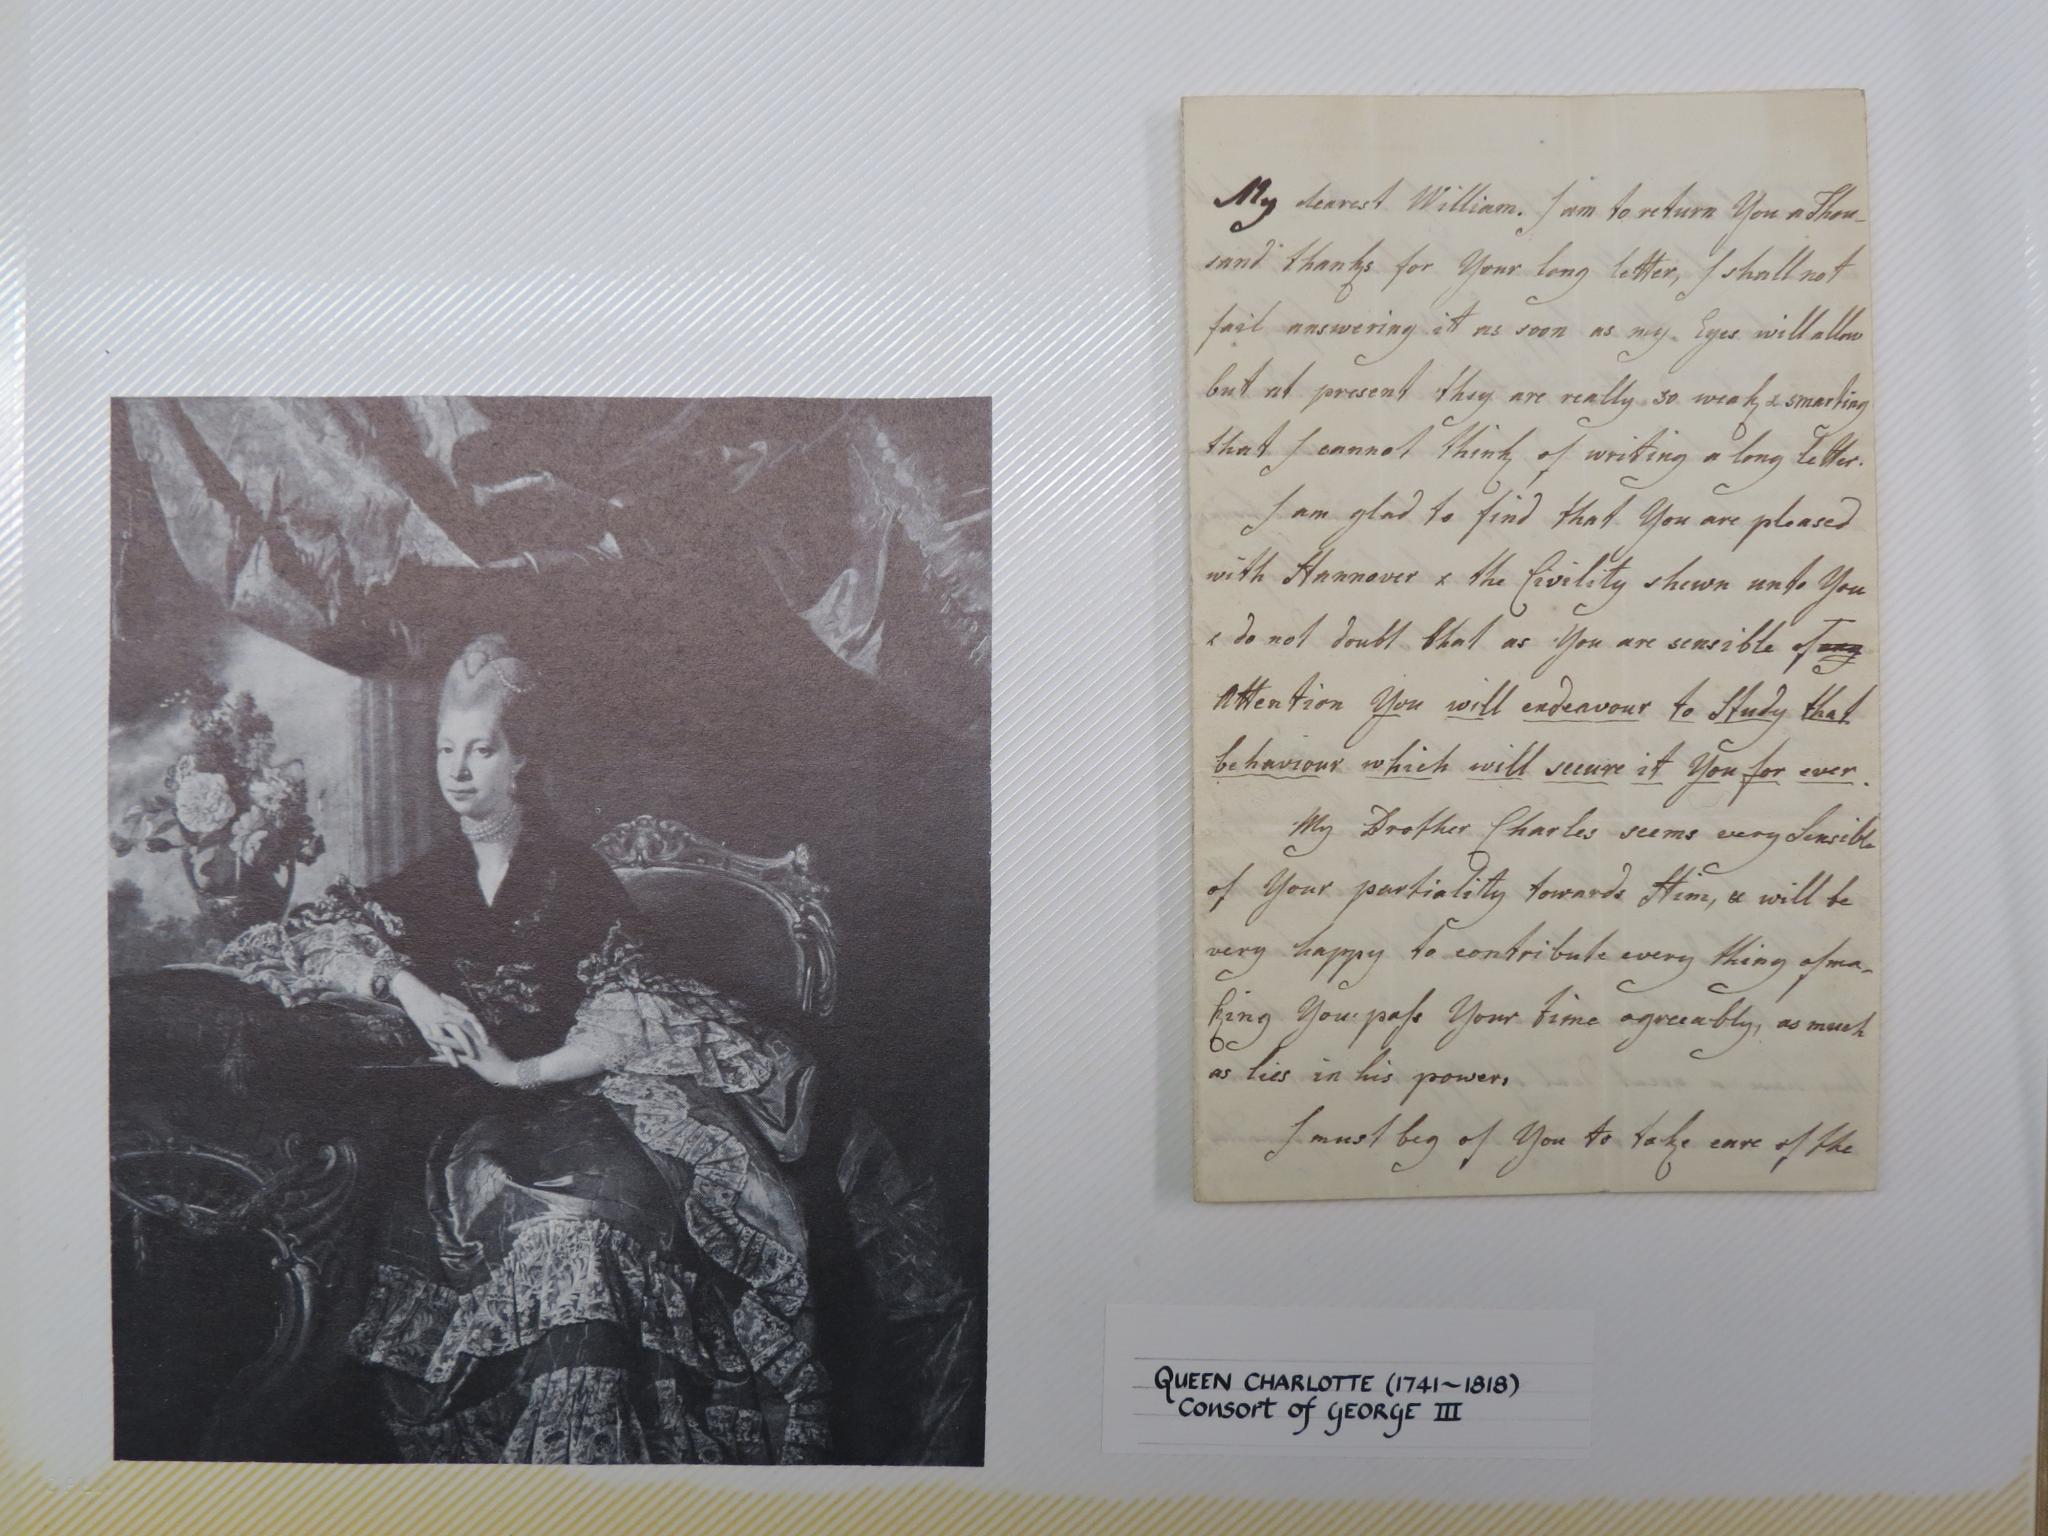 My dearest William. I am to return You a Thou-
sand thanks for Your long letter, I shall not
fail answering it as soon as my Eyes will allow
but at present they are really so weak & smarting
that I cannot think of writing a long letter.
I am glad to find that You are pleased
with Hannover & the Civility shewn unto You
& do not doubt that as You are sensible of
Attention You will endeavour to Study that
behaviour which will secure it You for ever.
My Brother Charles seems very Sensible
of Your partiality towards Him, & will be
very happy to contribute every thing of ma-
king You pass Your time agreeably, as much
as lies in his power.
I must beg of You to take care of the
QUEEN CHARLOTTE (1741~1818)
Consort of GEORGE III